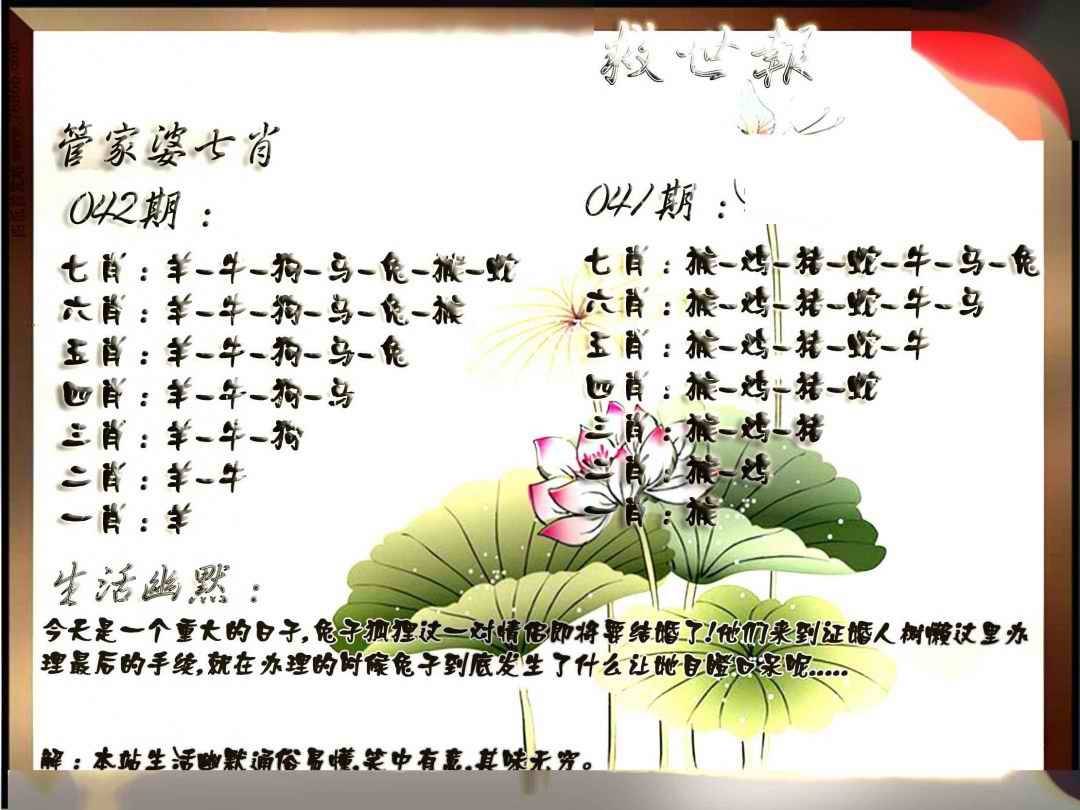 救世報
管家婆七肖
042期：
七肖：羊-牛-狗-马-兔-猴-蛇
六肖：羊-牛-狗-马-兔-猴
五肖：羊-牛-狗-马-兔
四肖：羊-牛-狗-马
三肖：羊-牛-狗
二肖：羊-牛
一肖：羊
041期：
七肖：猴-鸡-猪-蛇-牛-马-兔
六肖：猴-鸡-猪-蛇-牛-马
五肖：猴-鸡-猪-蛇-牛
四肖：猴-鸡-猪-蛇
三肖：猴-鸡-猪
二肖：猴-鸡
一肖：猴
生活幽默：
今天是一个重大的日子,兔子狐狸这一对情侣即将要结婚了!他们来到证婚人树懒这里办
理最后的手续,就在办理的时候兔子到底发生了什么让她目瞪口呆呢.....
解：本站生活幽默通俗易懂,笑中有意,其味无穷。